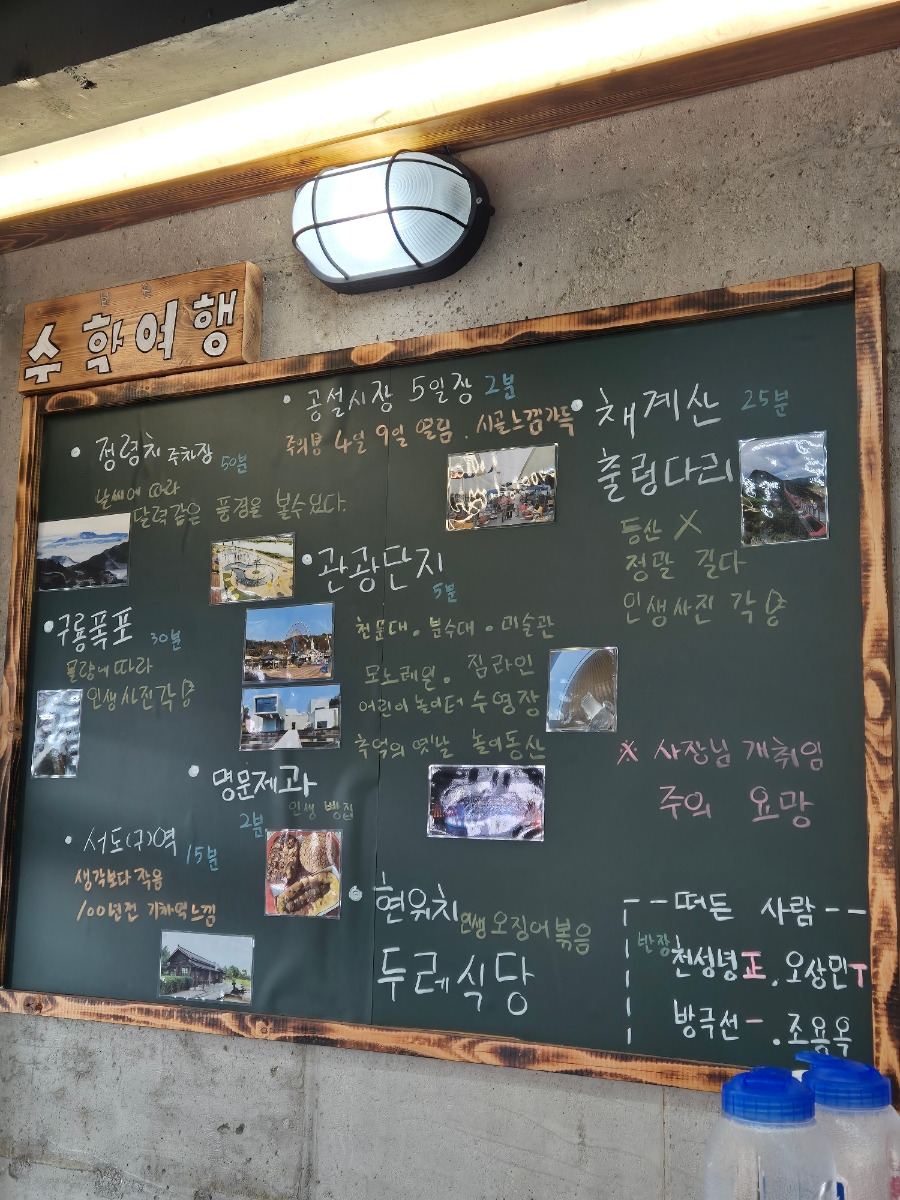 수학여행
• 공설시장 5일장 2분
주의봉 4일 9일 열림. 시골느낌가득
• 채계산 25분
출렁다리
등산 X
정말 길다
인생사진 각
• 정령치 주차장 50분
날씨에 따라
달력같은 풍경을 볼수있다.
• 관광단지
5분
천문대. 분수대. 미술관
모노레일. 짚라인
어린이 놀이터 수영장
추억의 옛날 놀이동산
• 구룡폭포 30분
물량에 따라
인생사진각
• 명문제과
2분 인생 빵집
• 서도(구)역 15분
생각보다 작음
100년전 기차역느낌
• 현위치 인생 오징어볶음
두레식당
※ 사장님 개취임
주의 요망
떠든 사람
반장 천성녕 正. 오상민 T
방극선 一. 조용옥